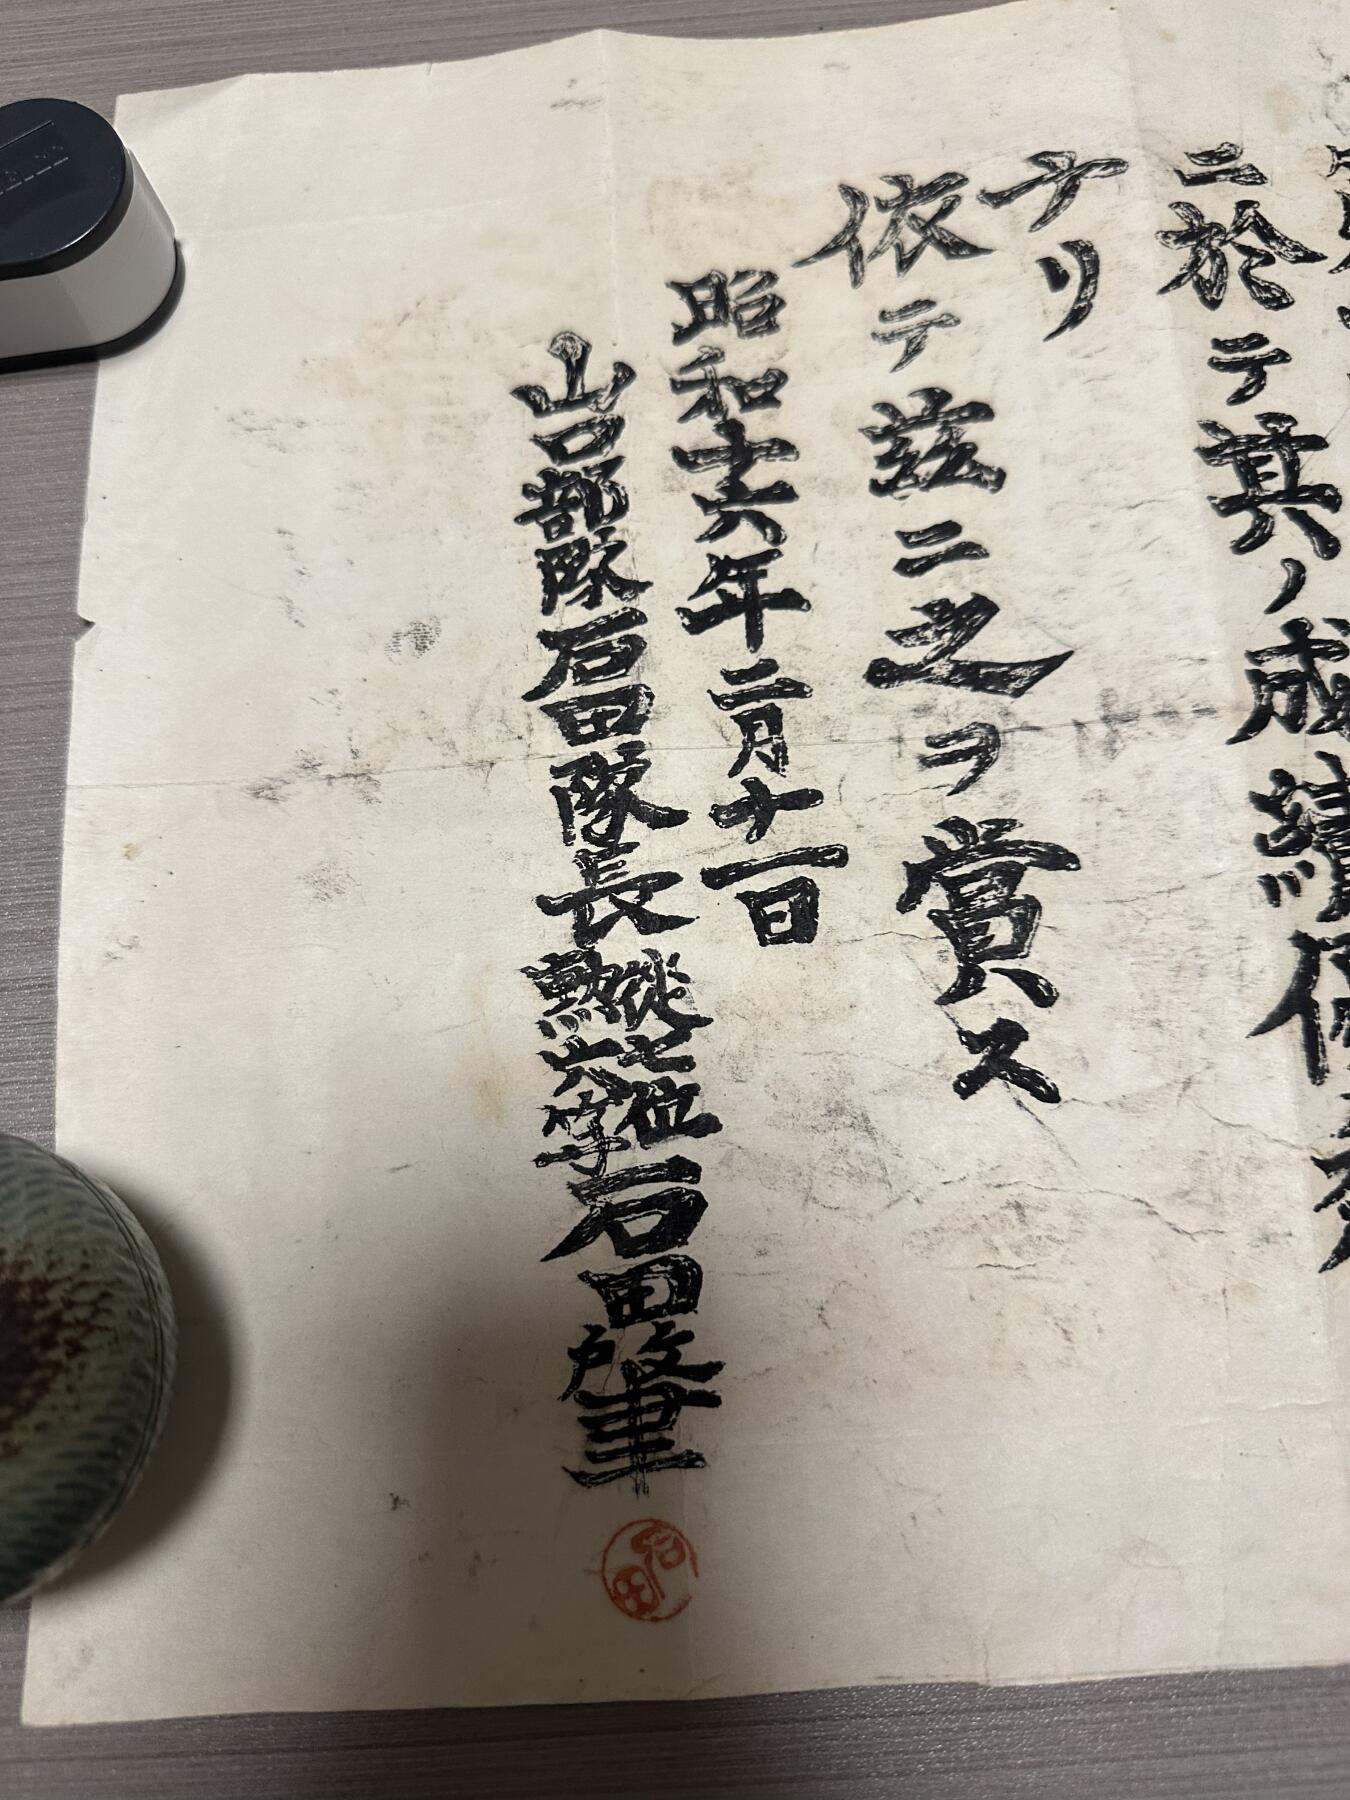 ニ於テ其ノ成績優秀
ナリ
依テ茲ニ之ヲ賞ス
昭和十六年二月十一日
山口部隊石田隊長従七位勲六等石田肇
石田